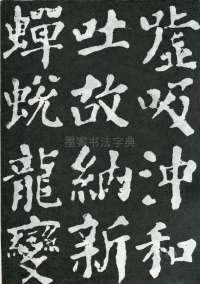 嘘吸沖和
吐故納新
蟬蛻龍變
墨客书法字典